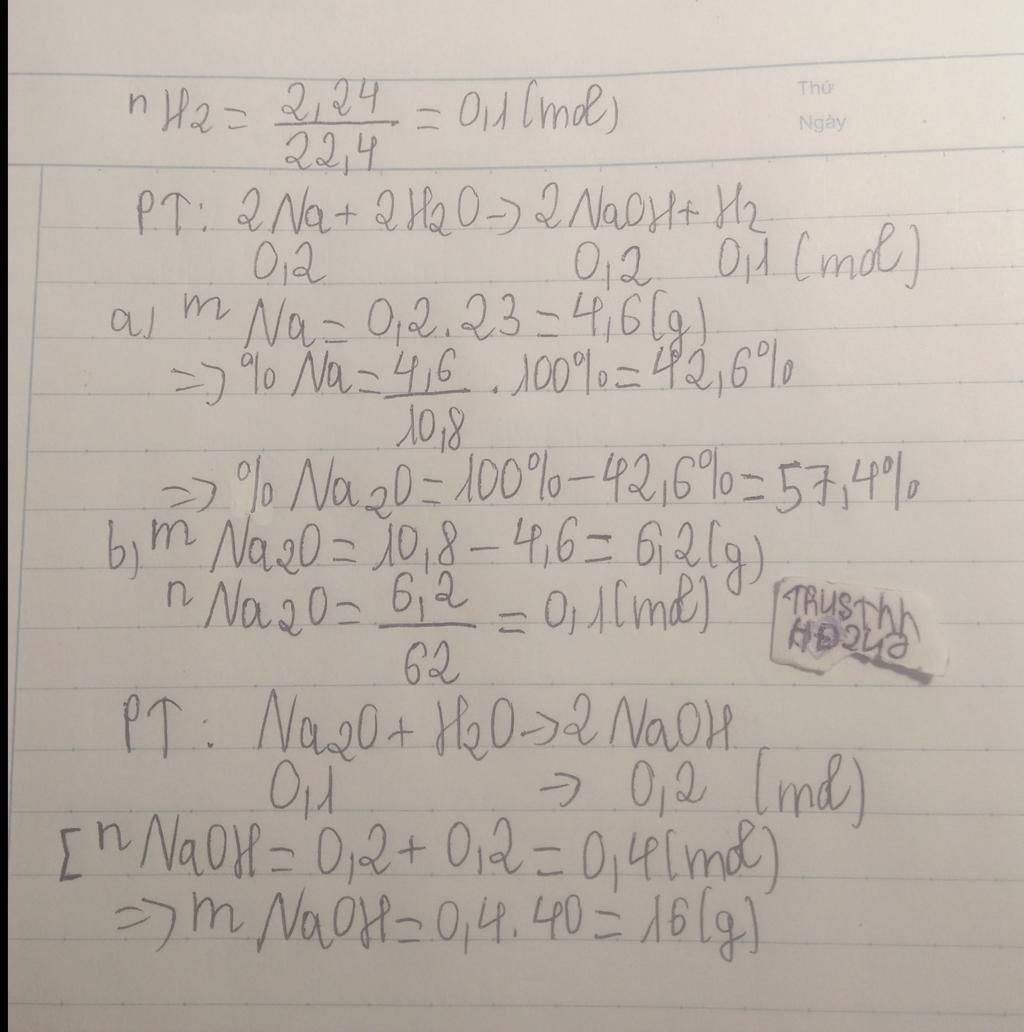 Thứ
Ngày
nH2 = 2,24/22,4 = 0,1 (mol)
PT: 2Na + 2H2O → 2NaOH + H2
0,2 0,2 0,1 (mol)
a, mNa = 0,2.23 = 4,6(g)
=> %Na = 4,6/10,8 . 100% = 42,6%
=> %Na2O = 100% - 42,6% = 57,4%
b, mNa2O = 10,8 - 4,6 = 6,2(g)
nNa2O = 6,2/62 = 0,1(mol)
PT: Na2O + H2O → 2NaOH
0,1 → 0,2 (mol)
[nNaOH = 0,2 + 0,2 = 0,4(mol)
=> mNaOH = 0,4.40 = 16(g)